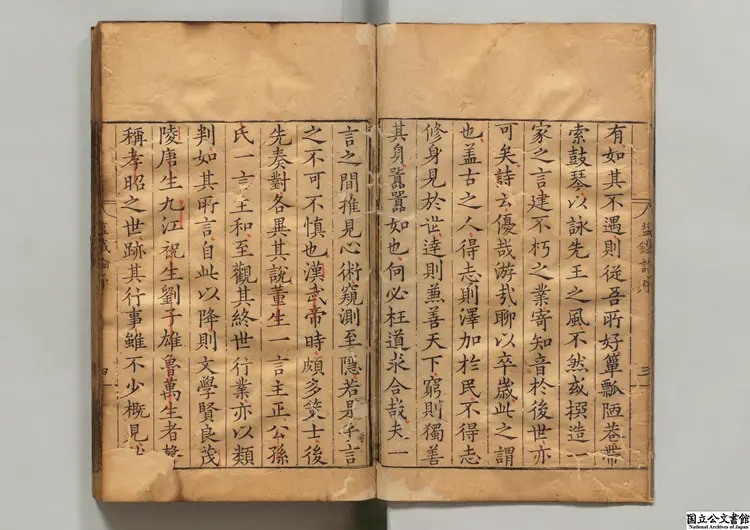 有如其不遇則從吾所好簞瓢陋巷帶
索鼓琴以詠先王之風不然或撰造一
家之言建不朽之業寄知音於後世亦
可矣詩云優哉游哉聊以卒歲此之謂
也盖古之人得志則澤加於民不得志
修身見於世達則兼善天下窮則獨善
其身囂囂如也何必枉道求合哉夫一
三
言之間推見心術窺測至隱若是乎言
之不可不慎也漢武帝時頗多筑士後
先奏對各異其說董生一言主正公孫
氏一言主和至觀其終世行業亦以類
判如其所言自此以降則文學賢良茂
陵唐生九江祝生劉子雄魯萬生者
稱孝昭之世跡其行事雖不少概見
四
国立公文書館
National Archives of Japan